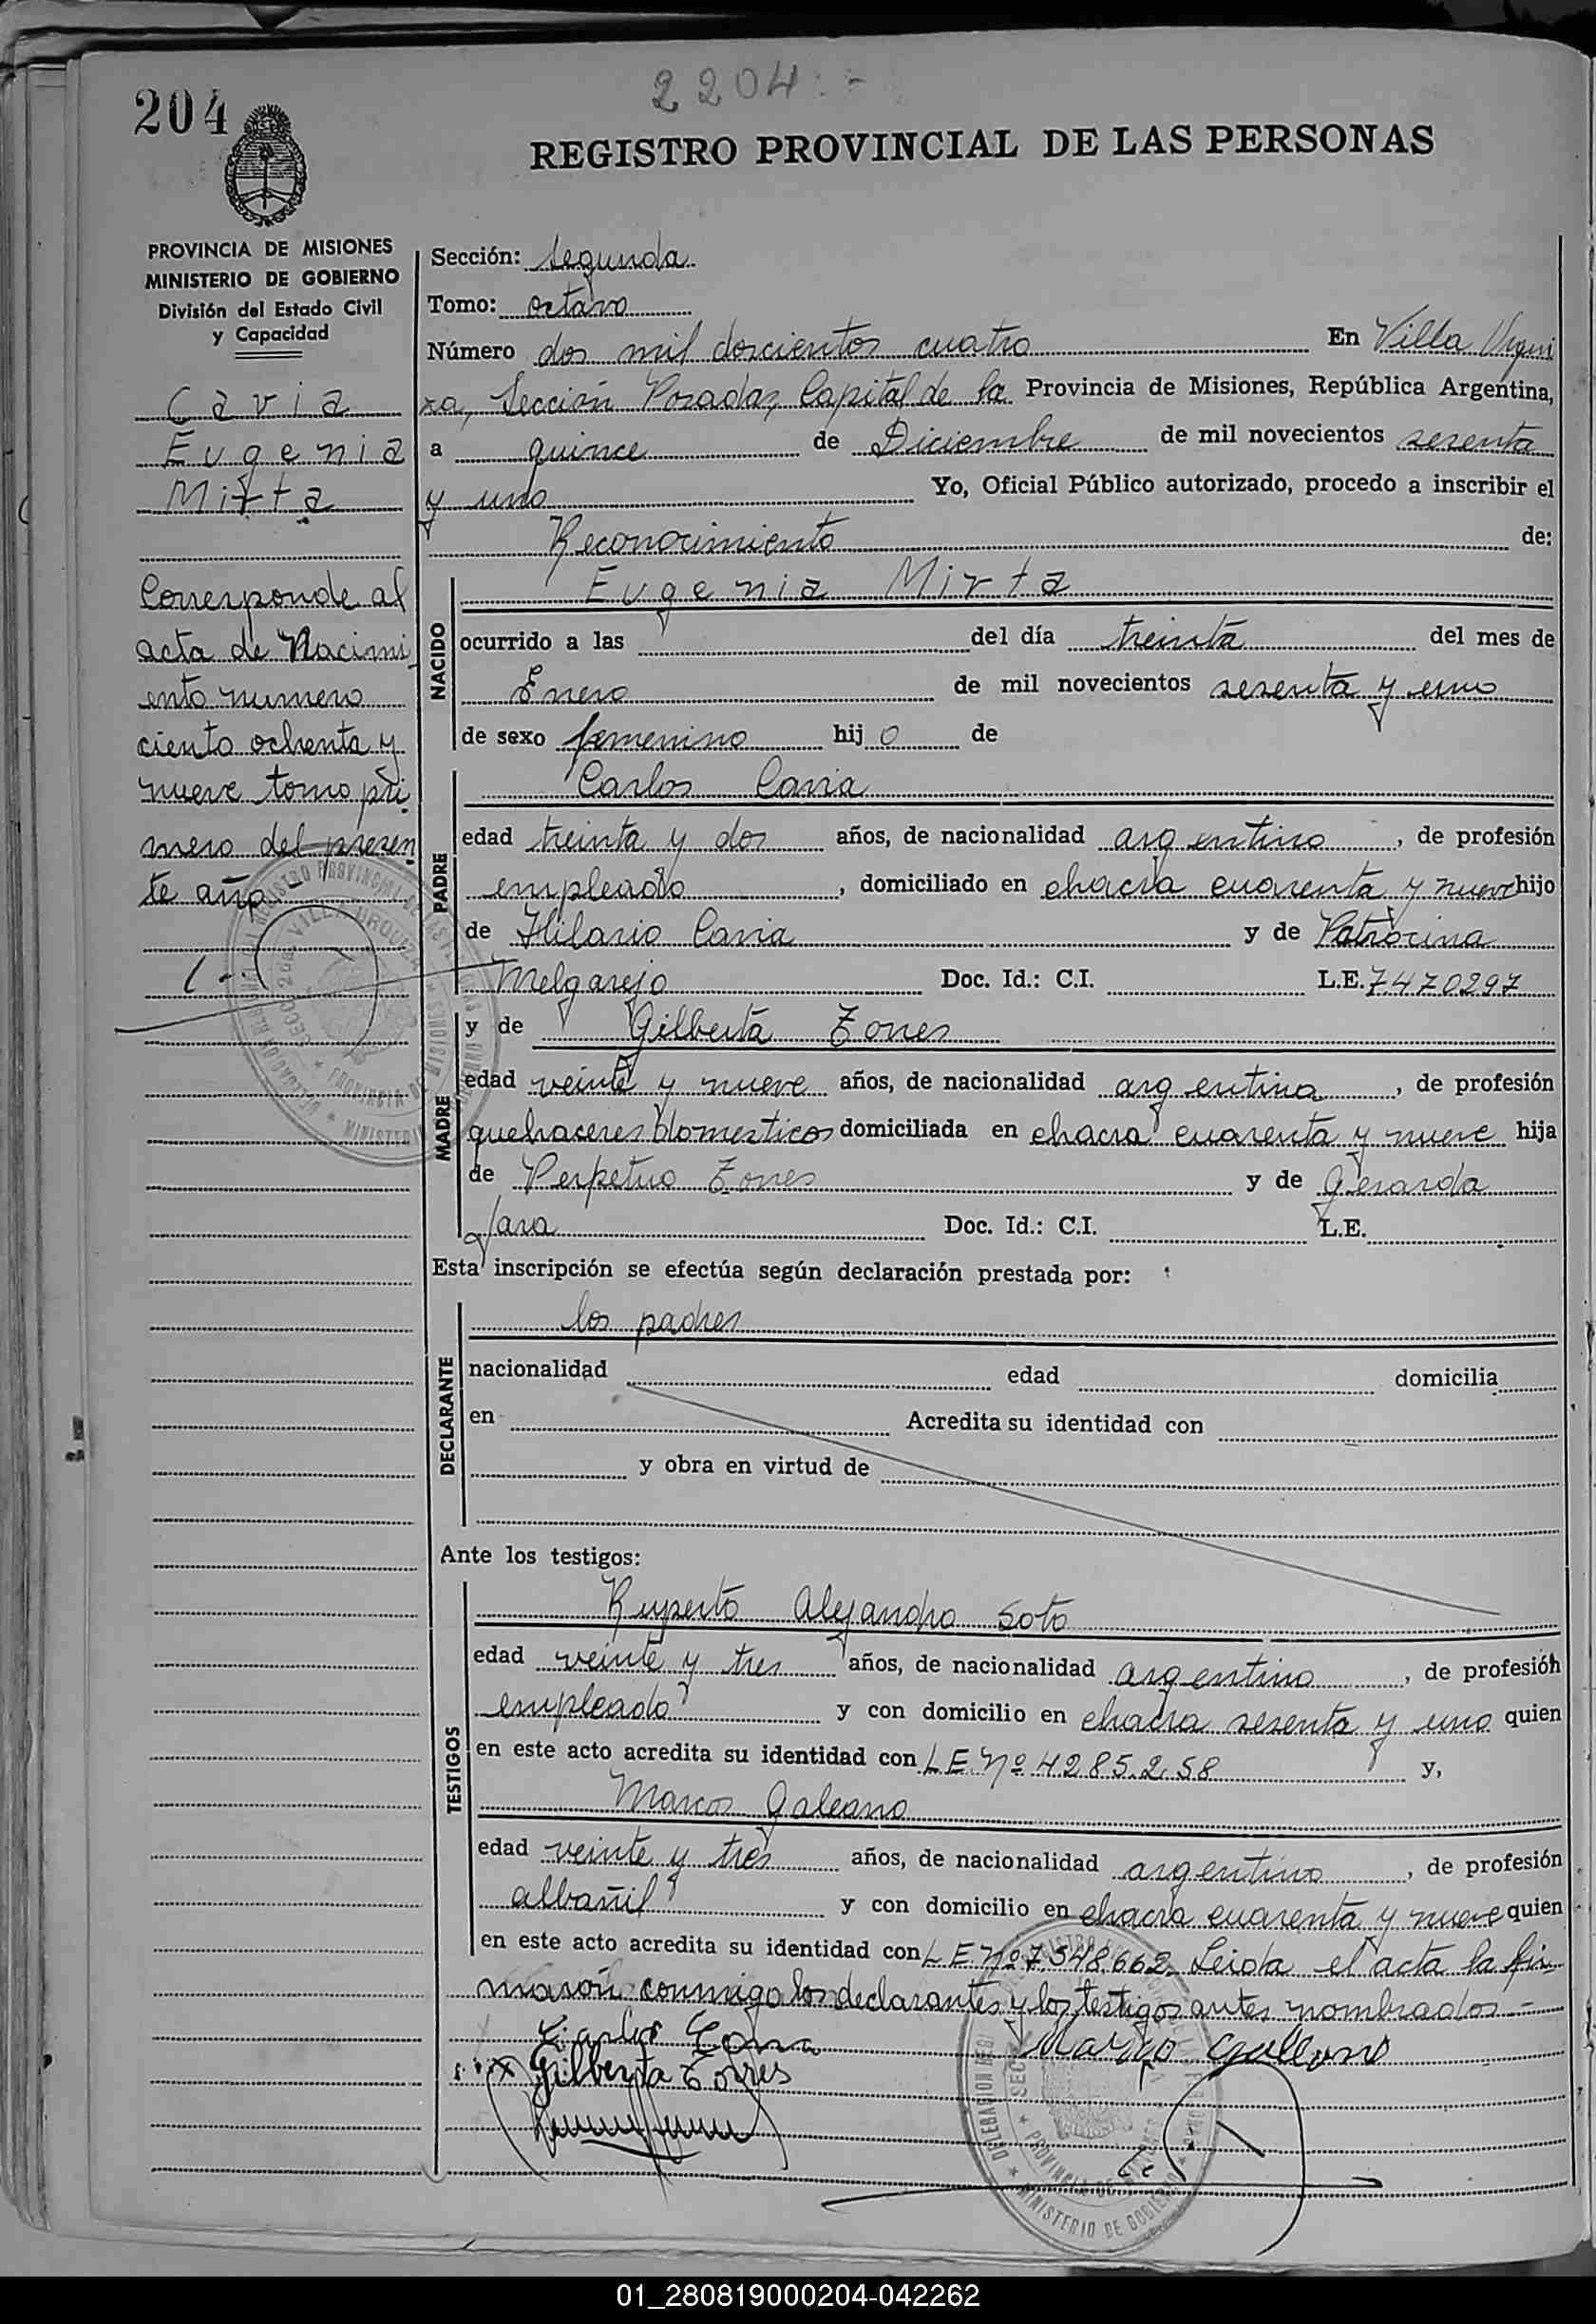 2204:-
204
REGISTRO PROVINCIAL DE LAS PERSONAS
PROVINCIA DE MISIONES
MINISTERIO DE GOBIERNO
División del Estado Civil
y Capacidad
Cavia
Eugenia
Mirta
Corresponde al
acta de Nacimi
ento numero
ciento ochenta y
nueve tomo pri
mero del presen
te año.-
Sección: Segunda
Tomo: octavo
Número dos mil doscientos cuatro En Villa Urqui
za, Sección Posadas, Capital de la Provincia de Misiones, República Argentina,
a quince de Diciembre de mil novecientos sesenta
y uno Yo, Oficial Público autorizado, procedo a inscribir el
Reconocimiento de:
NACIDO
Eugenia Mirta
ocurrido a las del día treinta del mes de
Enero de mil novecientos sesenta y uno
de sexo femenino hij o de
PADRE
Carlos Cavia
edad treinta y dos años, de nacionalidad argentino, de profesión
empleado, domiciliado en chacra cuarenta y nueve hijo
de Hilario Cavia y de Patrocina
Melgarejo Doc. Id.: C.I. L.E. 7470297
MADRE
y de Gilberta Torres
edad veinte y nueve años, de nacionalidad argentina, de profesión
quehaceres domesticos domiciliada en chacra cuarenta y nueve hija
de Perpetuo Torres y de Gerarda
Jara Doc. Id.: C.I. L.E.
Esta inscripción se efectúa según declaración prestada por:
DECLARANTE
los padres
nacionalidad edad domicilia
en Acredita su identidad con
y obra en virtud de
Ante los testigos:
TESTIGOS
Ruperto Alejandro Soto
edad veinte y tres años, de nacionalidad argentino, de profesión
empleado y con domicilio en chacra sesenta y uno quien
en este acto acredita su identidad con L E. Nº 4285258 y,
Marcos Galeano
edad veinte y tres años, de nacionalidad argentino, de profesión
albañil y con domicilio en chacra cuarenta y nueve quien
en este acto acredita su identidad con L E. Nº 7.548.662. Leida el acta la fir
maron conmigo los declarantes y los testigos antes nombrados.-
Carlos
Gilberta Torres
01_280819000204-042262